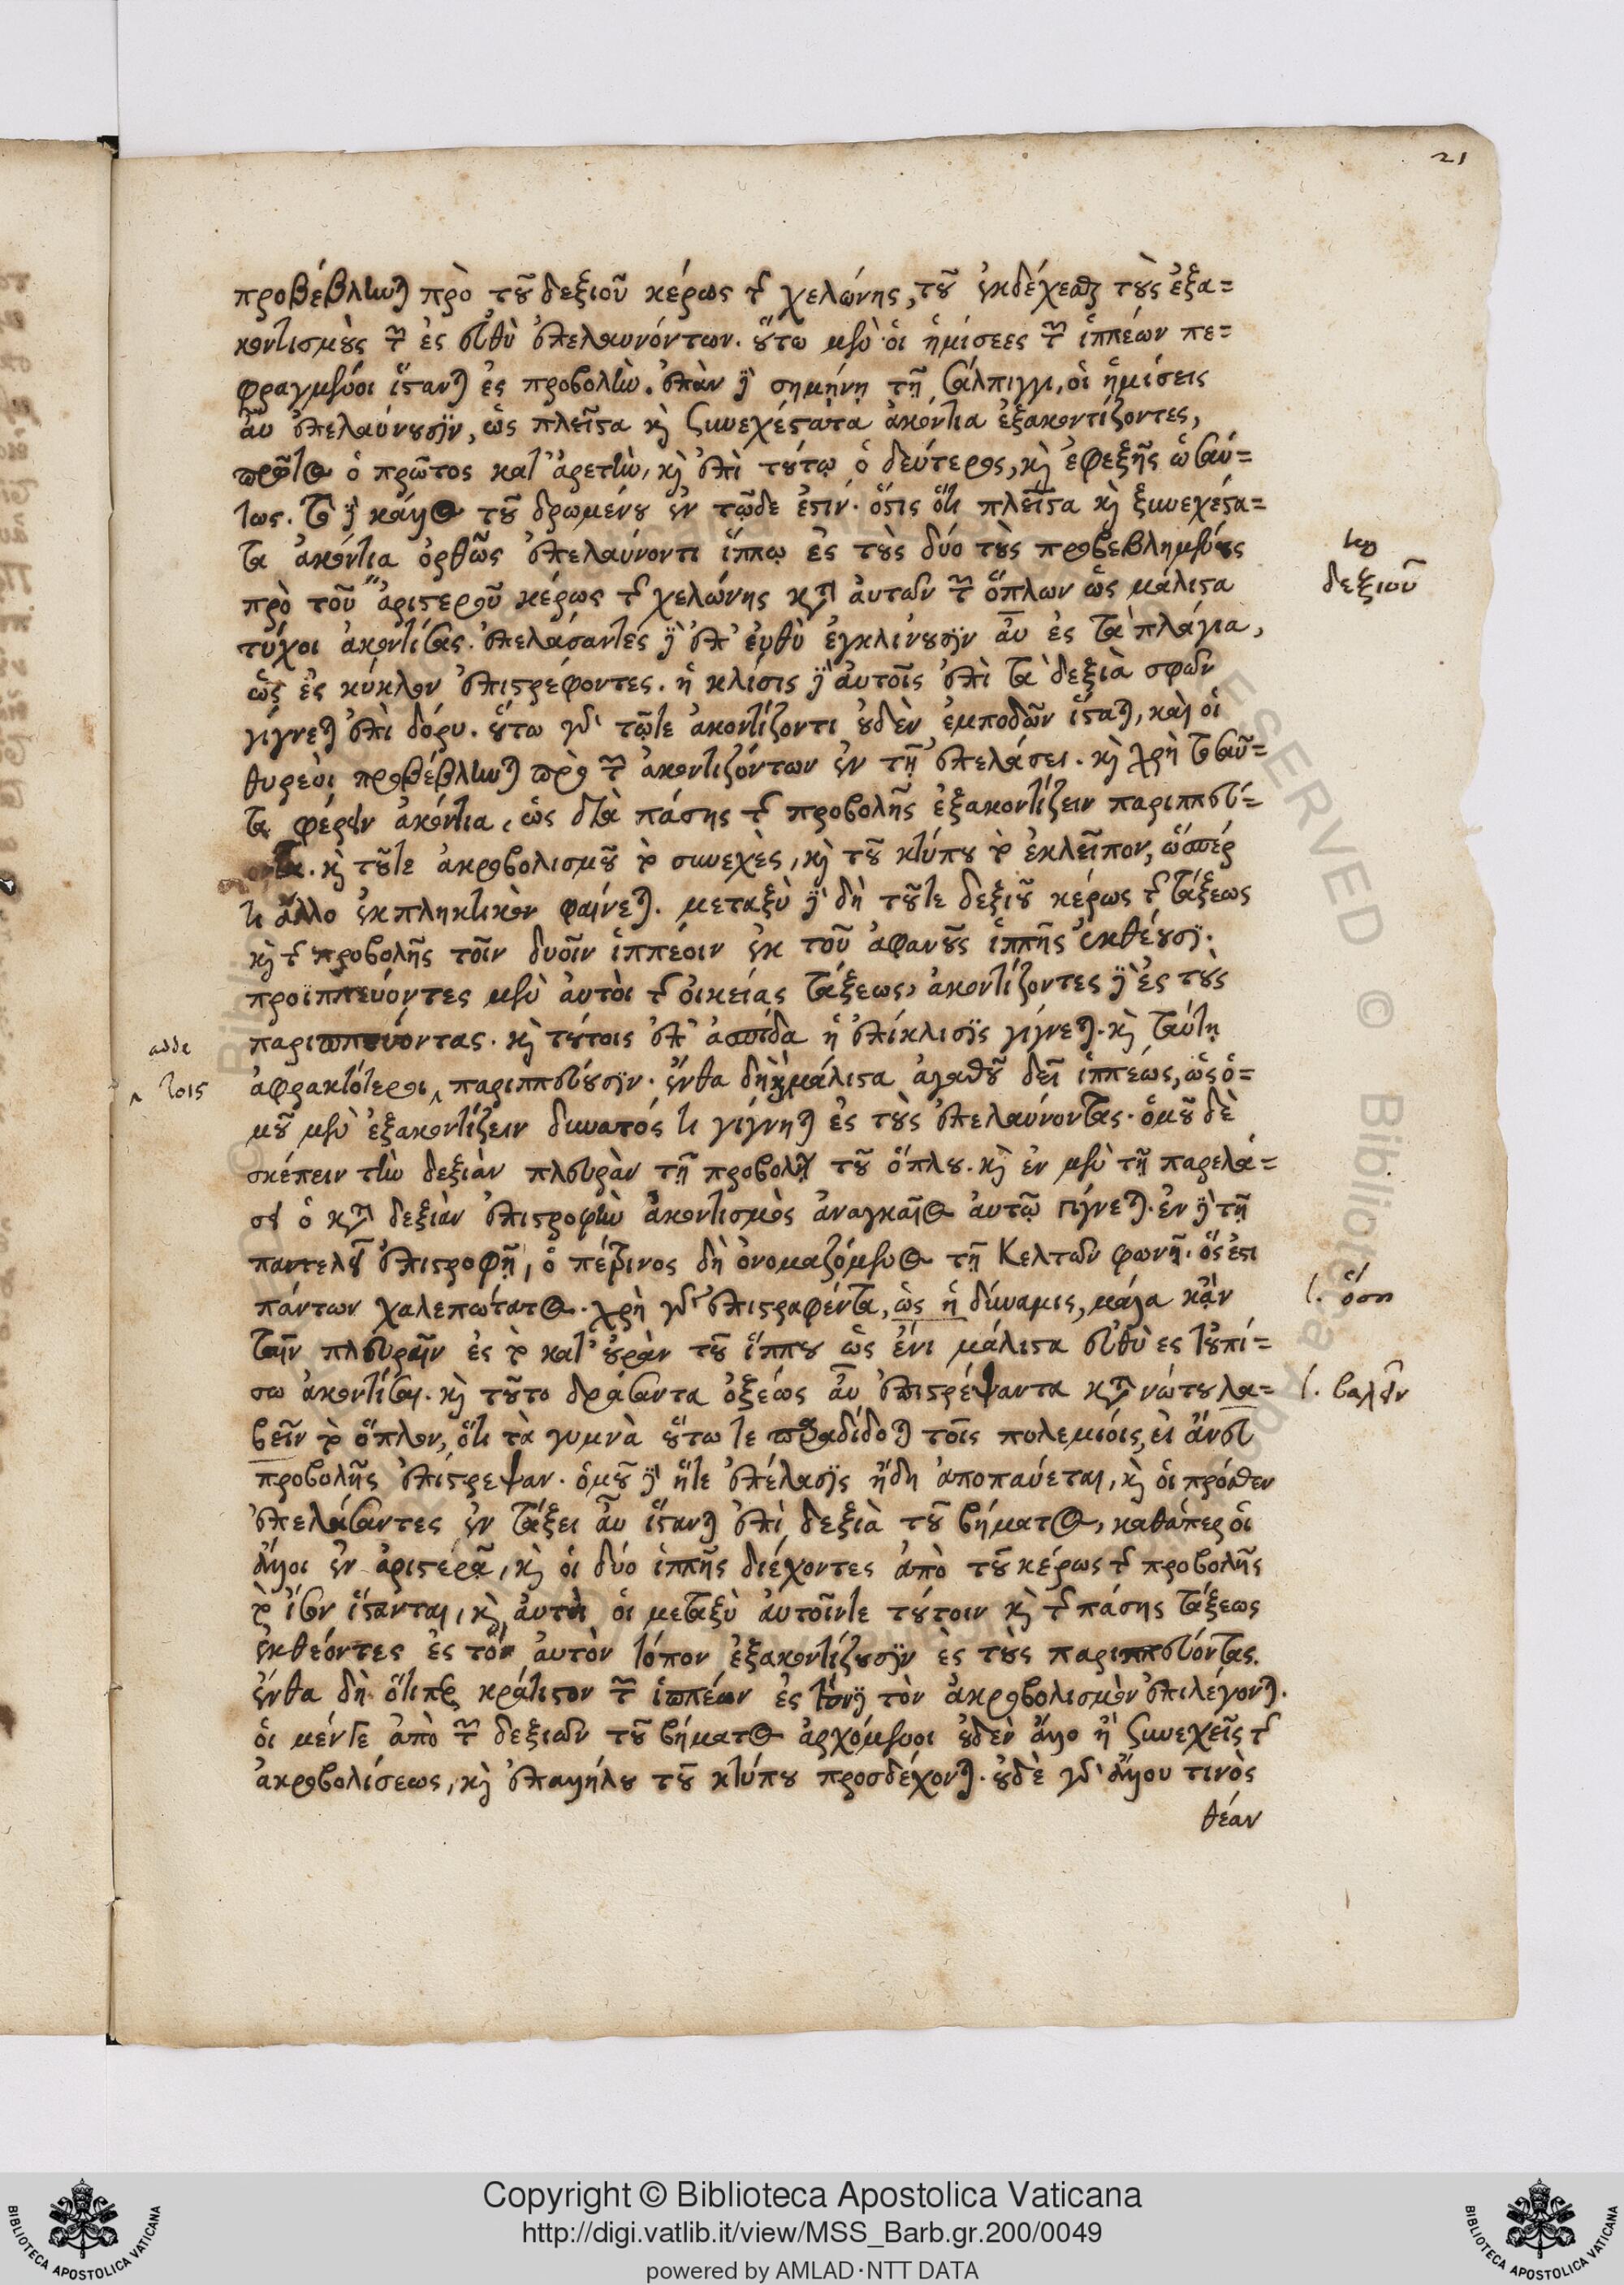 21
προβέβληται πρὸ τοῦ δεξιοῦ κέρως τῆς χελώνης, τοῦ ἐκδέχεσθαι τοὺς ἐξα=
κοντισμοὺς τῶν ἐς εὐθὺ ἐπελαυνόντων. οὕτω μὲν οἱ ἡμίσεες τῶν ἱππέων πε=
φραγμένοι ἵστανται ἐς προβολὴν. ἐπὰν δὲ σημήνῃ τῇ σάλπιγγι, οἱ ἡμίσεις
αὖ ἐπελαύνουσιν, ὡς πλεῖστα καὶ ξυνεχέστατα ἀκόντια ἐξακοντίζοντες,
πρῶτος ὁ πρῶτος κατ' ἀρετὴν, καὶ ἐπὶ τούτῳ ὁ δεύτερος, καὶ ἐφεξῆς ὡσαύ=
τως. τὸ δὲ κάλλος τοῦ δρωμένου ἐν τῷδε ἐστίν. ὅστις ὅτι πλεῖστα καὶ ξυνεχέστα=
τα ἀκόντια ὀρθῶς ἐπελαύνοντι ἵππῳ ἐς τοὺς δύο τοὺς προβεβλημένους
πρὸ τοῦ ἀριστεροῦ κέρως τῆς χελώνης κατ' αὐτῶν τῶν ὅπλων ὡς μάλιστα
δεξιοῦ
τύχοι ἀκοντίσας. ἐπελάσαντες δὲ ἐπ' εὐθὺ ἐγκλίνουσιν αὖ ἐς τὰ πλάγια,
ὡς ἐς κύκλον ἐπιστρέφοντες. ἡ κλίσις δὲ αὐτοῖς ἐπὶ τὰ δεξιὰ σφῶν
γίγνεται ἐπὶ δόρυ. οὕτω γὰρ τῷτε ἀκοντίζοντι οὐδὲν ἐμποδῶν ἵσταται, καὶ οἱ
θυρεοὶ προβέβληνται πρὸ τῶν ἀκοντιζόντων ἐν τῇ ἐπελάσει. καὶ χρὴ τοσαῦ=
τα φέρειν ἀκόντια, ὡς διὰ πάσης τῆς προβολῆς ἐξακοντίζειν παριππεύ=
οντα. καὶ τοῦτε ἀκροβολισμοῦ τὸ συνεχὲς, καὶ τοῦ κτύπου τὸ ἐκλεῖπον, ὥσπέρ
τι ἄλλο ἐκπληκτικὸν φαίνεται. μεταξὺ δὲ δὴ τοῦτε δεξιοῦ κέρως τῆς τάξεως
καὶ τῆς προβολῆς τοῖν δυοῖν ἱππέοιν ἐκ τοῦ ἀφανοῦς ἱππῆς ἐκθέουσι.
προϊππεύοντες μὲν αὐτοὶ τῆς οἰκείας τάξεως, ἀκοντίζοντες δὲ ἐς τοὺς
παριππεύοντας. καὶ τούτοις ἐπ' ἀσπίδα ἡ ἐπίκλισις γίγνεται. καὶ ταύτῃ
ἀφρακτότεροι ‸ παριππεύουσιν. ἔνθα δὴ καὶ μάλιστα ἀγαθοῦ δεῖ ἱππέως, ὡς ὁ=
adde
‸ τοις
μοῦ μὲν ἐξακοντίζειν δυνατός τι γίγνηται ἐς τοὺς ἐπελαύνοντας. ὁμοῦ δὲ
σκέπειν τὴν δεξιὰν πλευρὰν τῇ προβολῇ τοῦ ὅπλου. καὶ ἐν μὲν τῇ παρελά=
σει ὁ κατὰ δεξιὰν ἐπιστροφὴν ἀκοντισμὸς ἀναγκαῖος αὐτῷ γίγνεται. ἐν δὲ τῇ
παντελεῖ ἐπιστροφῇ, ὁ πέτρινος δὴ ὀνομαζόμενος τῇ Κελτῶν φωνῇ. ὅς ἐστι
πάντων χαλεπώτατος. χρὴ γὰρ ἐπιστραφέντα, ὡς ἡ δύναμις, μάλα κἂν
l. ὅση
ταῖν πλευραῖν ἐς τὸ κατ' οὐρὰν τοῦ ἵππου ὡς ἔνι μάλιστα εὐθὺ ες τοὐπί=
σω ἀκοντίσαι. καὶ τοῦτο δράσαντα ὀξέως αὖ ἐπιστρέψαντα κατὰ νώτου λα=
l. βαλεῖν
βεῖν τὸ ὅπλον, ὅτι τὰ γυμνὰ οὕτω τε παραδίδοται τοῖς πολεμίοις, εἰ ἄνευ
προβολῆς ἐπίστρεψαν. ὁμοῦ δὲ ἥτε ἐπέλασις ἤδη ἀποπαύεται, καὶ οἱ πρόσθεν
ἐπελάσαντες ἐν τάξει αὖ ἵστανται ἐπὶ δεξιὰ τοῦ βήματος, καθάπερ οἱ
ἄλλοι ἐν ἀριστερᾷ, καὶ οἱ δύο ἱππῆς διέχοντες ἀπὸ τοῦ κέρως τῆς προβολῆς
τὸ ἴσον ἵστανται, καὶ αὐτοὶ οἱ μεταξὺ αὐτοῖντε τούτοιν καὶ τῆς πάσης τάξεως
ἐκθέοντες ἐς τὸν αὐτὸν τόπον ἐξακοντίζουσιν ἐς τοὺς παριππεύοντας.
ἔνθα δὴ ὅτιπερ κράτιστον τῶν ἱππέων ἐς τόνδε τὸν ἀκροβολισμὸν ἐπιλέγονται.
οἱ μέντε ἀπὸ τῶν δεξιῶν τοῦ βήματος ἀρχόμενοι οὐδὲν ἄλλο ἢ ξυνεχεῖς τῆς
ἀκροβολίσεως, καὶ ἐπαλλήλου τοῦ κτύπου προσδέχονται. οὐδὲ γὰρ ἄλλου τινὸς
θέαν
Copyright © Biblioteca Apostolica Vaticana
http://digi.vatlib.it/view/MSS_Barb.gr.200/0049
powered by AMLAD·NTT DATA